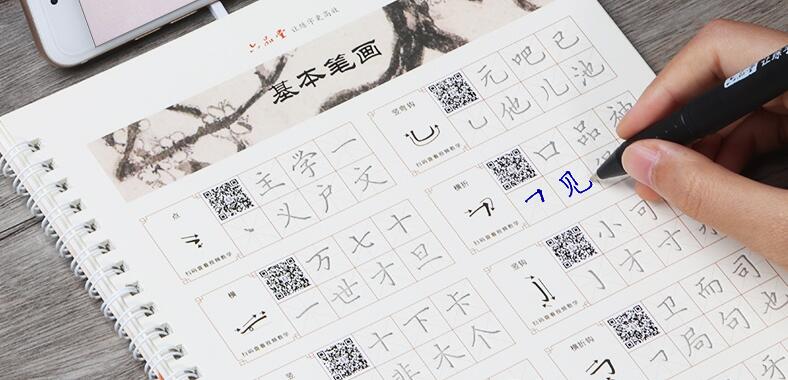 六品堂 让练字更高效
基本笔画
点
扫码查看视频教学
主学一
丶义户文
横
扫码查看视频教学
万七十
一世才旦
竖
十下卡
非木个
竖弯钩
扫码查看视频教学
元吧已
乚他儿池
横折
扫码查看视频教学
口品神
𠃍见
竖钩
扫码查看视频教学
小可
亅才寸
横折钩
卫而司
局句也